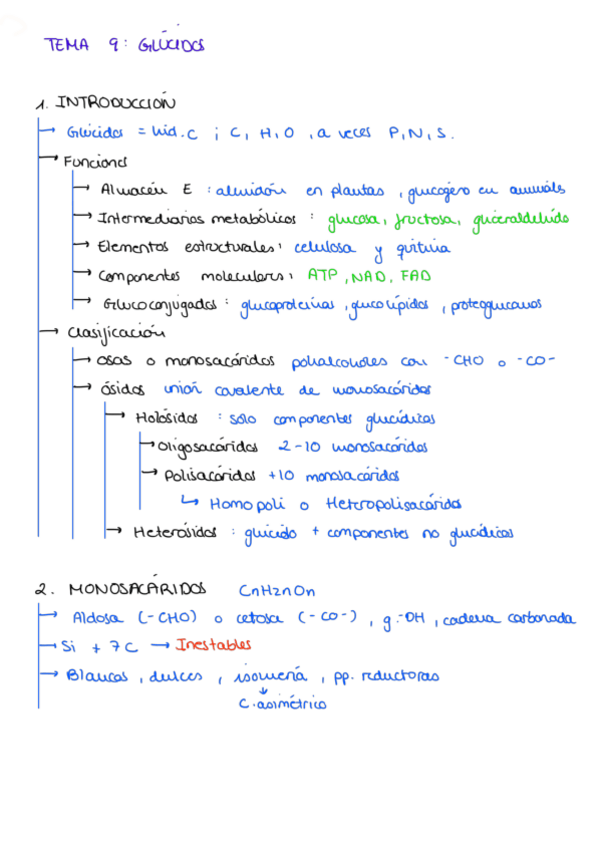 TEMA 9: GLÚCIDOS
1. INTRODUCCIÓN
→ Glúcidos = hid. C ; C, H, O , a veces P, N, S.
→ Funciones
→ Almacén E : almidón en plantas , glucógeno en animales
→ Intermediarios metabólicos : glucosa, fructosa, gliceraldehído
→ Elementos estructurales: celulosa y quitina
→ Componentes moleculares: ATP, NAD, FAD
→ Glucoconjugados : glucoproteínas , glucolípidos , proteoglucanos
→ Clasificación
→ osas o monosacáridos polialcoholes con -CHO o -CO-
→ ósidos unión covalente de monosacáridos
→ Holósidos : sólo componentes glucídicos
→ Oligosacáridos 2-10 monosacáridos
→ Polisacáridos +10 monosacáridos
↳ Homopoli o Heteropolisacáridos
→ Heterósidos : glúcido + componentes no glucídicos
2. MONOSACÁRIDOS CnH2nOn
→ Aldosa (-CHO) o cetosa (-CO-) , g.-OH , cadena carbonada
→ Si + 7C → Inestables
→ Blancos , dulces , isomería , pp. reductoras
↓
C. asimétrico